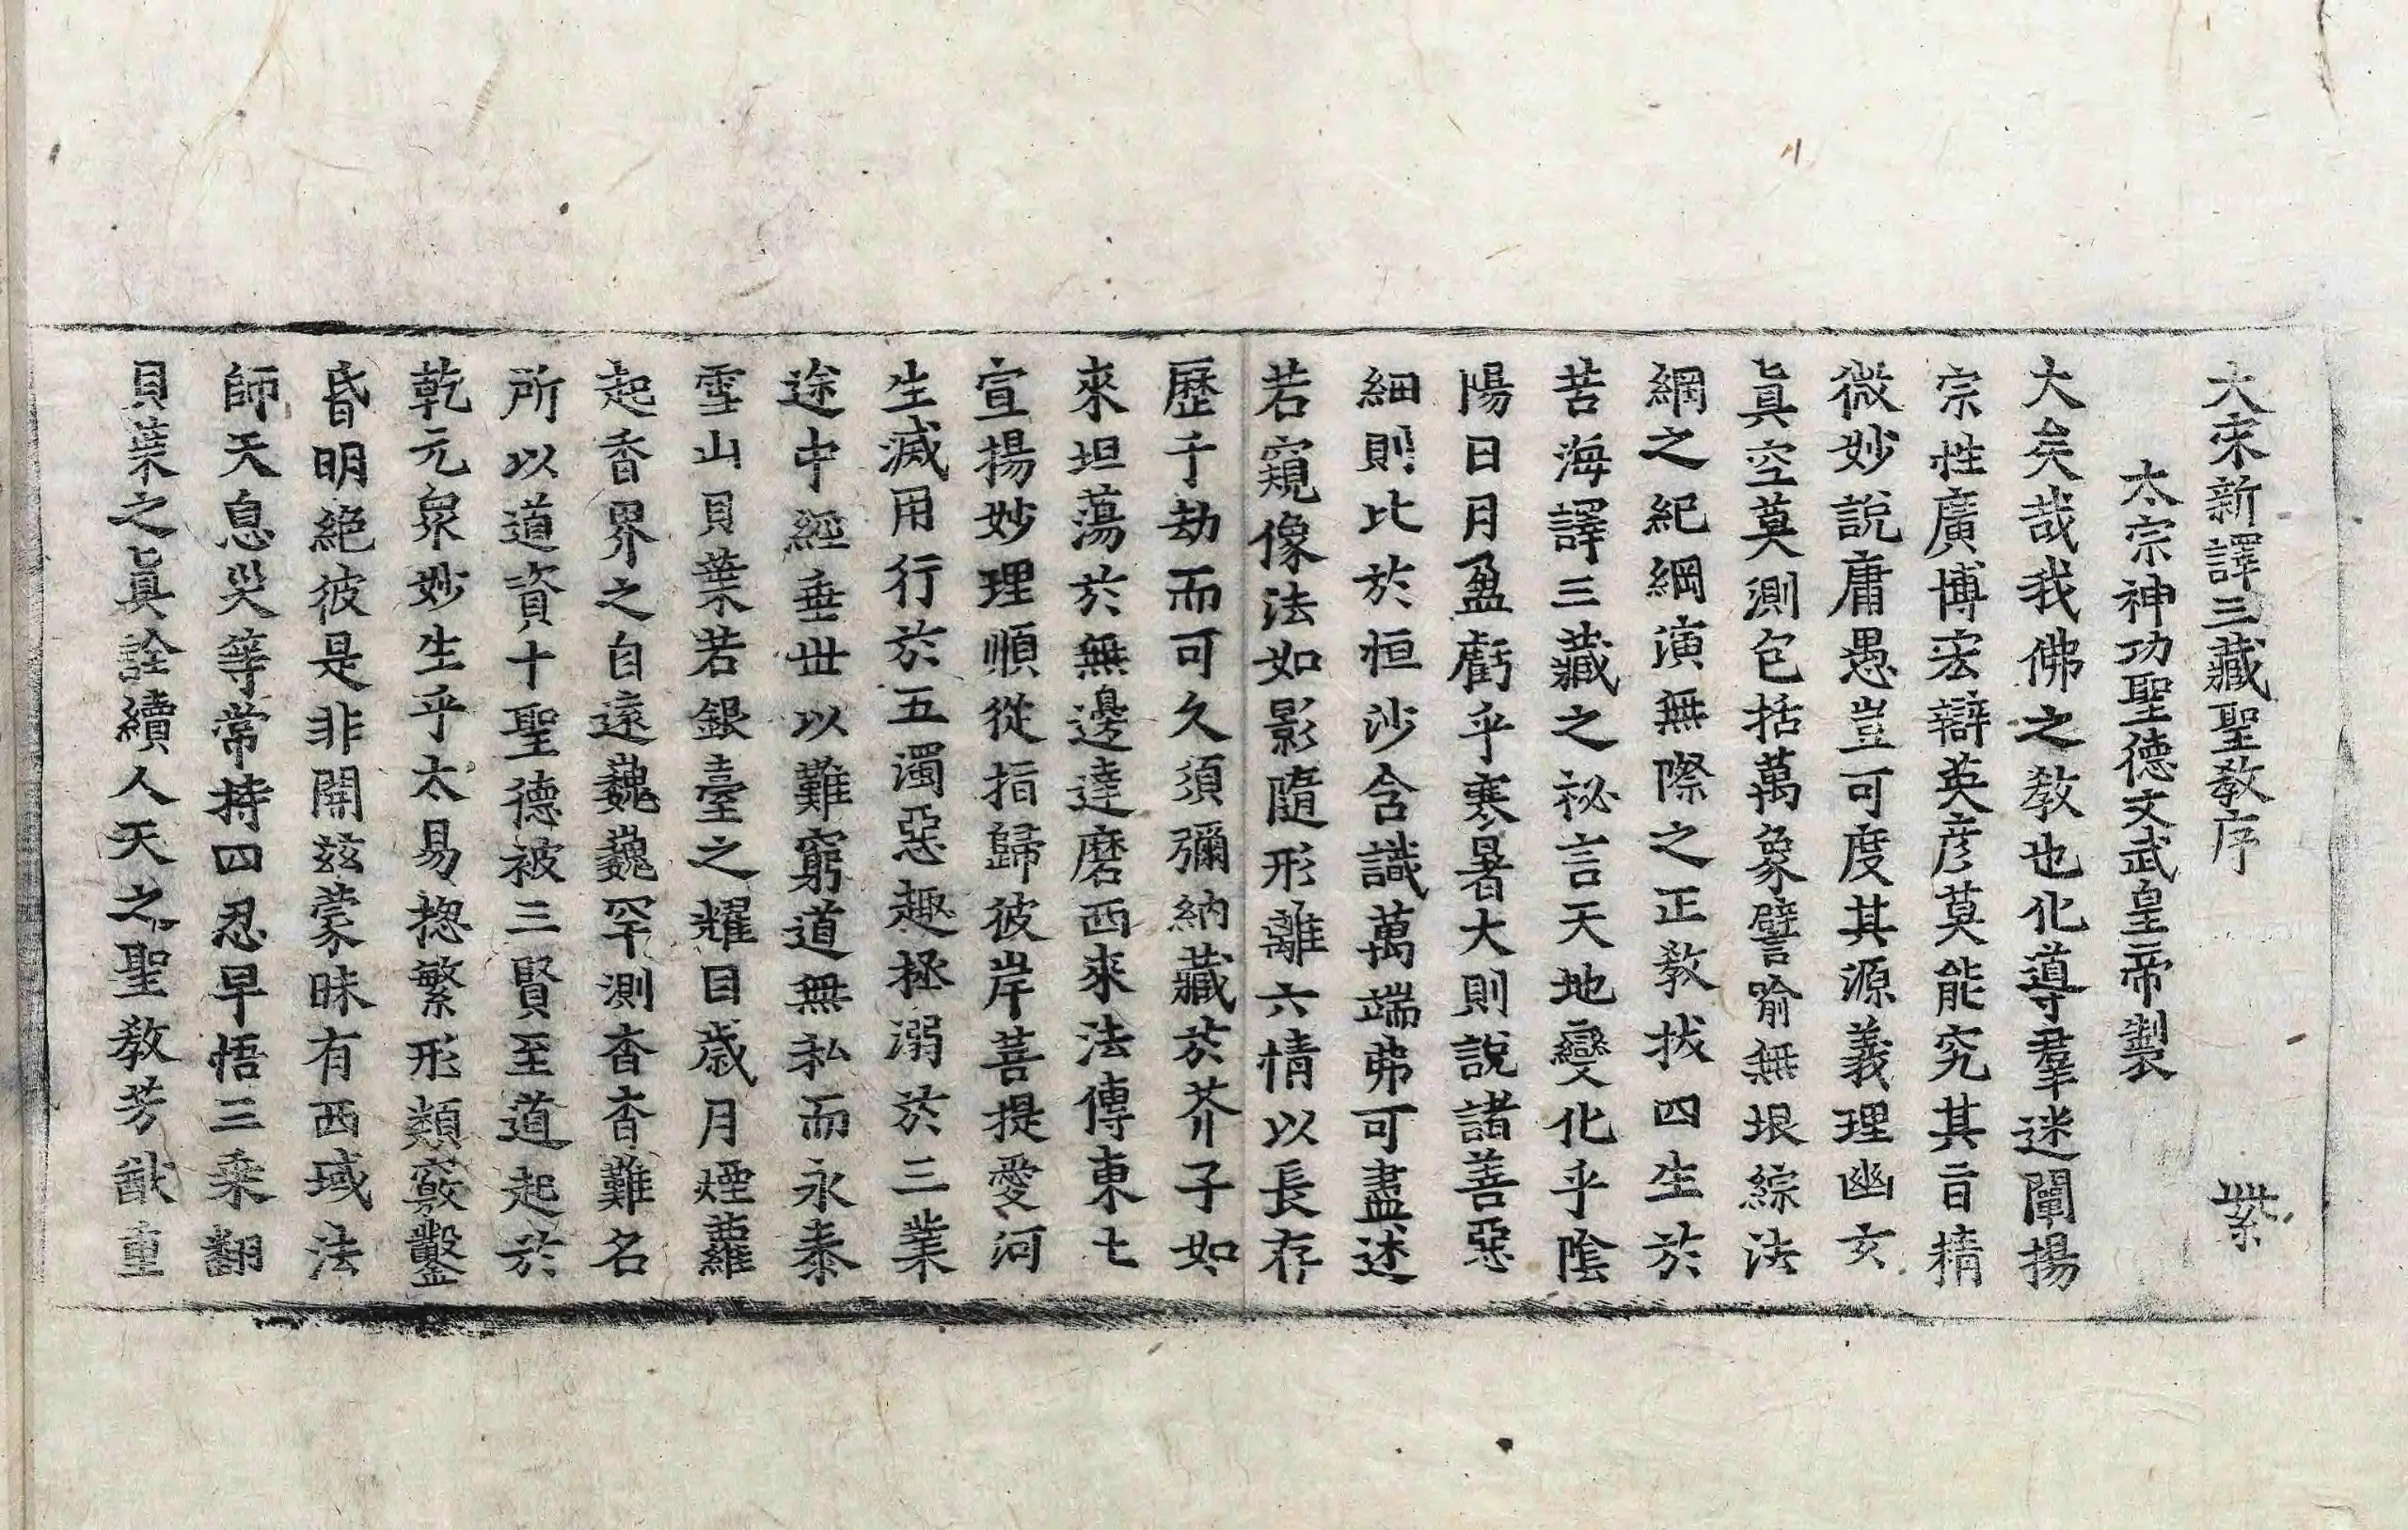 大宋新譯三藏聖教序　紫
太宗神功聖德文武皇帝製
大矣哉我佛之教也化導羣迷闡揚
宗性廣博宏辯英彦莫能究其旨精
微妙說庸愚豈可度其源義理幽玄
眞空莫測包括萬象譬喻無垠綜法
網之紀綱演無際之正教拔四生於
苦海譯三藏之祕言天地變化乎陰
陽日月盈虧乎寒暑大則說諸善惡
細則比於恒沙含識萬端弗可盡述
若窺像法如影隨形離六情以長存
歷千劫而可久須彌納藏於芥子如
來坦蕩於無邊達磨西來法傳東土
宣揚妙理順從指歸彼岸菩提愛河
生滅用行於五濁惡趣拯溺於三業
途中經垂世以難窮道無私而永泰
雪山貝葉若銀臺之耀目歲月煙蘿
起香界之自遠巍巍罕測杳杳難名
所以道資十聖德被三賢至道起於
乾元衆妙生乎太易揔繁形類竅鑿
昏明絕彼是非開兹蒙昧有西域法
師天息災等常持四忍早悟三乘翻
貝葉之眞詮續人天之聖教芳猷重